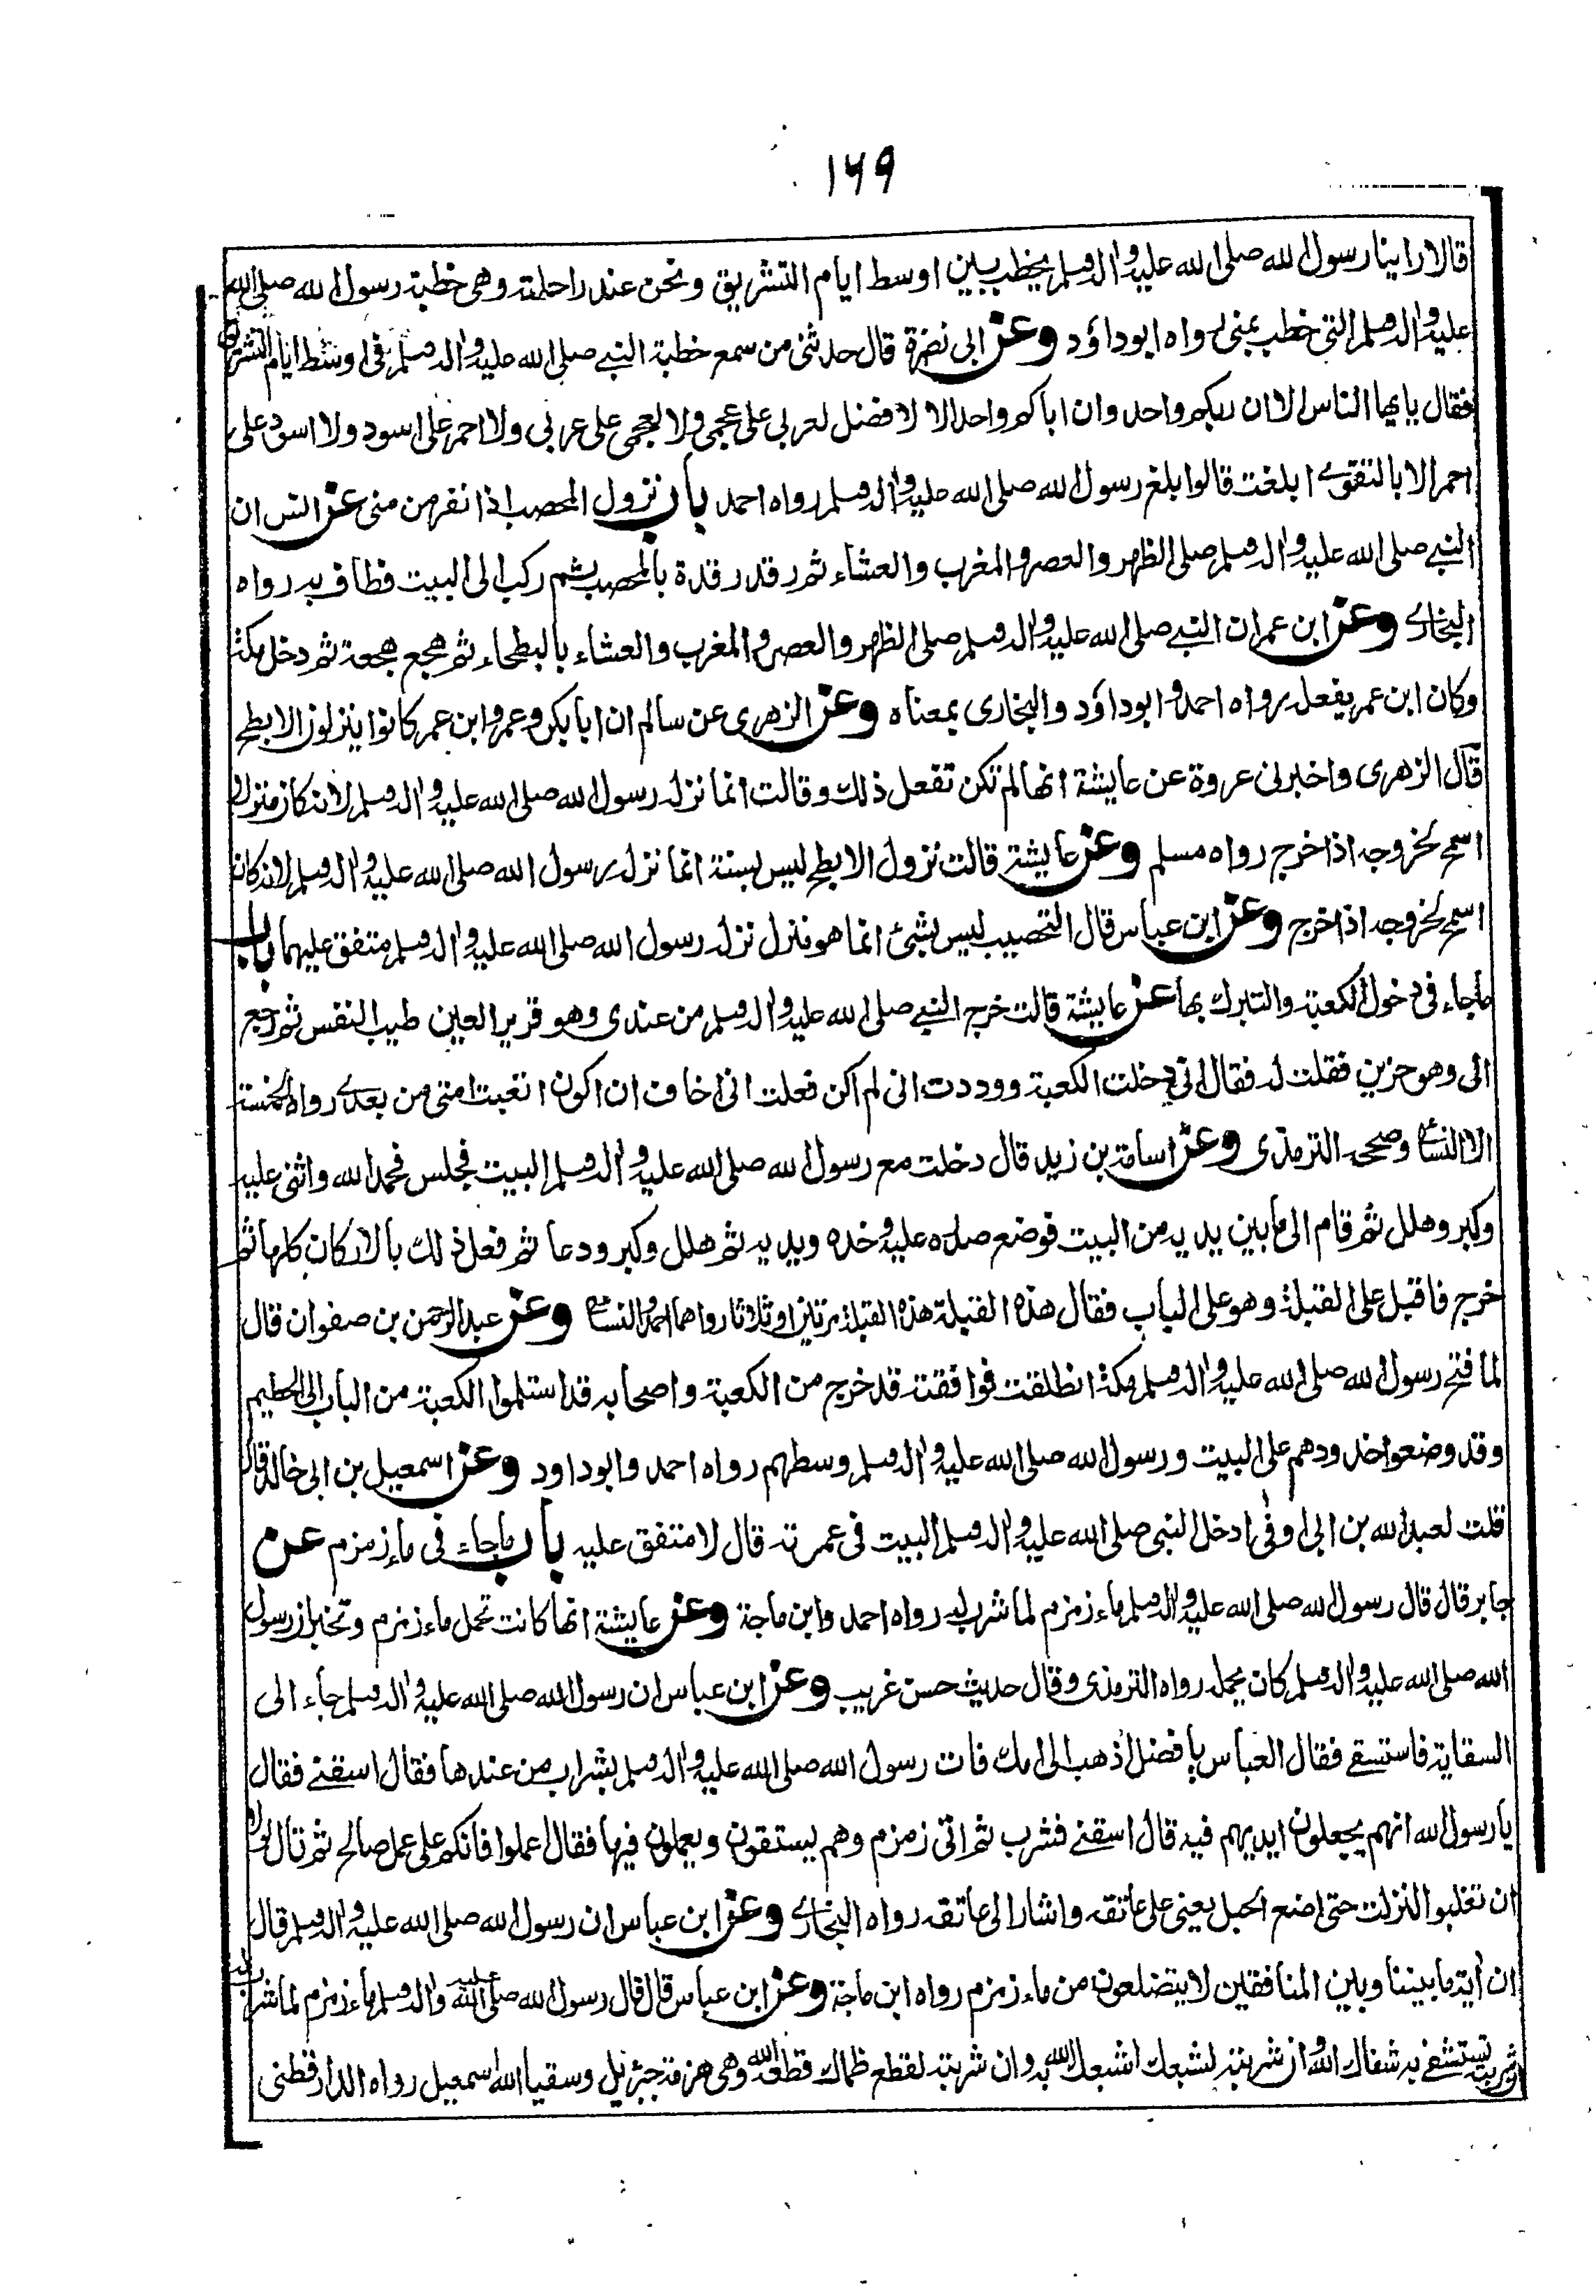 ١٦٩
قالا راينا رسول الله صلى الله عليه واله وسلم يخطب بين اوسط ايام التشريق ونحن عند راحلته وهى خطبة رسول الله صلى الله
عليه واله وسلم التى خطب بمنى رواه ابوداؤد وعن ابى نضرة قال حدثنى من سمع خطبة النبى صلى الله عليه واله وسلم فى اوسط ايام التشريق
فقال يايها الناس الا ان ربكم واحد وان اباكم واحد الا لا فضل لعربى على عجمى ولا لعجمى على عربى ولا احمر على اسود ولا اسود على
احمر الا بالتقوى ابلغت قالوا بلغ رسول الله صلى الله عليه واله وسلم رواه احمد باب نزول المحصب اذا نفر من منى عن انس ان
النبى صلى الله عليه واله وسلم صلى الظهر والعصر والمغرب والعشاء ثم رقد رقدة بالمحصب ثم ركب الى البيت فطاف به رواه
البخارى وعن ابن عمر ان النبى صلى الله عليه واله وسلم صلى الظهر والعصر والمغرب والعشاء بالبطحاء ثم هجع هجعة ثم دخل مكة
وكان ابن عمر يفعله رواه احمد وابوداؤد والبخارى بمعناه وعن الزهرى عن سالم ان ابا بكر وعمر وابن عمر كانوا ينزلون الابطح
قال الزهرى واخبرنى عروة عن عايشة انها لم تكن تفعل ذلك وقالت انما نزله رسول الله صلى الله عليه واله وسلم لانه كان منزلا
اسمح لخروجه اذا خرج رواه مسلم وعن عايشة قالت نزول الابطح ليس بسنة انما نزله رسول الله صلى الله عليه واله وسلم لانه كان
اسمح لخروجه اذا خرج وعن ابن عباس قال التحصيب ليس بشئ انما هو منزل نزله رسول الله صلى الله عليه واله وسلم متفق عليهما باب
ماجاء فى دخول الكعبة والتبرك بها عن عايشة قالت خرج النبى صلى الله عليه واله وسلم من عندى وهو قرير العين طيب النفس ثم رجع
الى وهو حزين فقلت له فقال انى دخلت الكعبة ووددت انى لم اكن فعلت انى اخاف ان اكون اتعبت امتى من بعدى رواه الخمسة
الا النسائى وصححه الترمذى وعن اسامة بن زيد قال دخلت مع رسول الله صلى الله عليه واله وسلم البيت فجلس فحمد الله واثنى عليه
وكبر وهلل ثم قام الى ما بين يديه من البيت فوضع صدره عليه وخده ويديه ثم هلل وكبر ودعا ثم فعل ذلك بالاركان كلها ثم
خرج فاقبل على القبلة وهو على الباب فقال هذه القبلة هذه القبلة مرتين او ثلاثا رواهما احمد والنسائى وعن عبدالرحمن بن صفوان قال
لما فتح رسول الله صلى الله عليه واله وسلم مكة انطلقت فوافقته قد خرج من الكعبة واصحابه قد استلموا الكعبة من الباب الى الحطيم
وقد وضعوا خدودهم على البيت ورسول الله صلى الله عليه واله وسلم وسطهم رواه احمد وابوداود وعن اسمعيل بن ابى خالد قال
قلت لعبد الله بن ابى اوفى ادخل النبى صلى الله عليه واله وسلم البيت فى عمرته قال لا متفق عليه باب ماجاء فى ماء زمزم عن
جابر قال قال رسول الله صلى الله عليه واله وسلم ماء زمزم لما شرب له رواه احمد وابن ماجة وعن عايشة انها كانت تحمل ماء زمزم وتخبر ان رسول
الله صلى الله عليه واله وسلم كان يحمله رواه الترمذى وقال حديث حسن غريب وعن ابن عباس ان رسول الله صلى الله عليه واله وسلم جاء الى
السقاية فاستسقى فقال العباس يا فضل اذهب الى امك فات رسول الله صلى الله عليه واله وسلم بشراب من عندها فقال اسقنى فقال
يا رسول الله انهم يجعلون ايديهم فيه قال اسقنى فشرب ثم اتى زمزم وهم يستقون ويعملون فيها فقال اعملوا فانكم على عمل صالح ثم قال لولا
ان تغلبوا لنزلت حتى اضع الحبل يعنى على عاتقه واشار الى عاتقه رواه البخارى وعن ابن عباس ان رسول الله صلى الله عليه واله وسلم قال
ان اية ما بيننا وبين المنافقين لا يتضلعون من ماء زمزم رواه ابن ماجة وعن ابن عباس قال قال رسول الله صلى الله عليه واله وسلم ماء زمزم لما شرب له
ان شربته تستشفى به شفاك الله وان شربته لشبعك اشبعك الله به وان شربته لقطع ظمائك قطعه الله وهى هزمة جبرئيل وسقيا الله اسمعيل رواه الدارقطنى